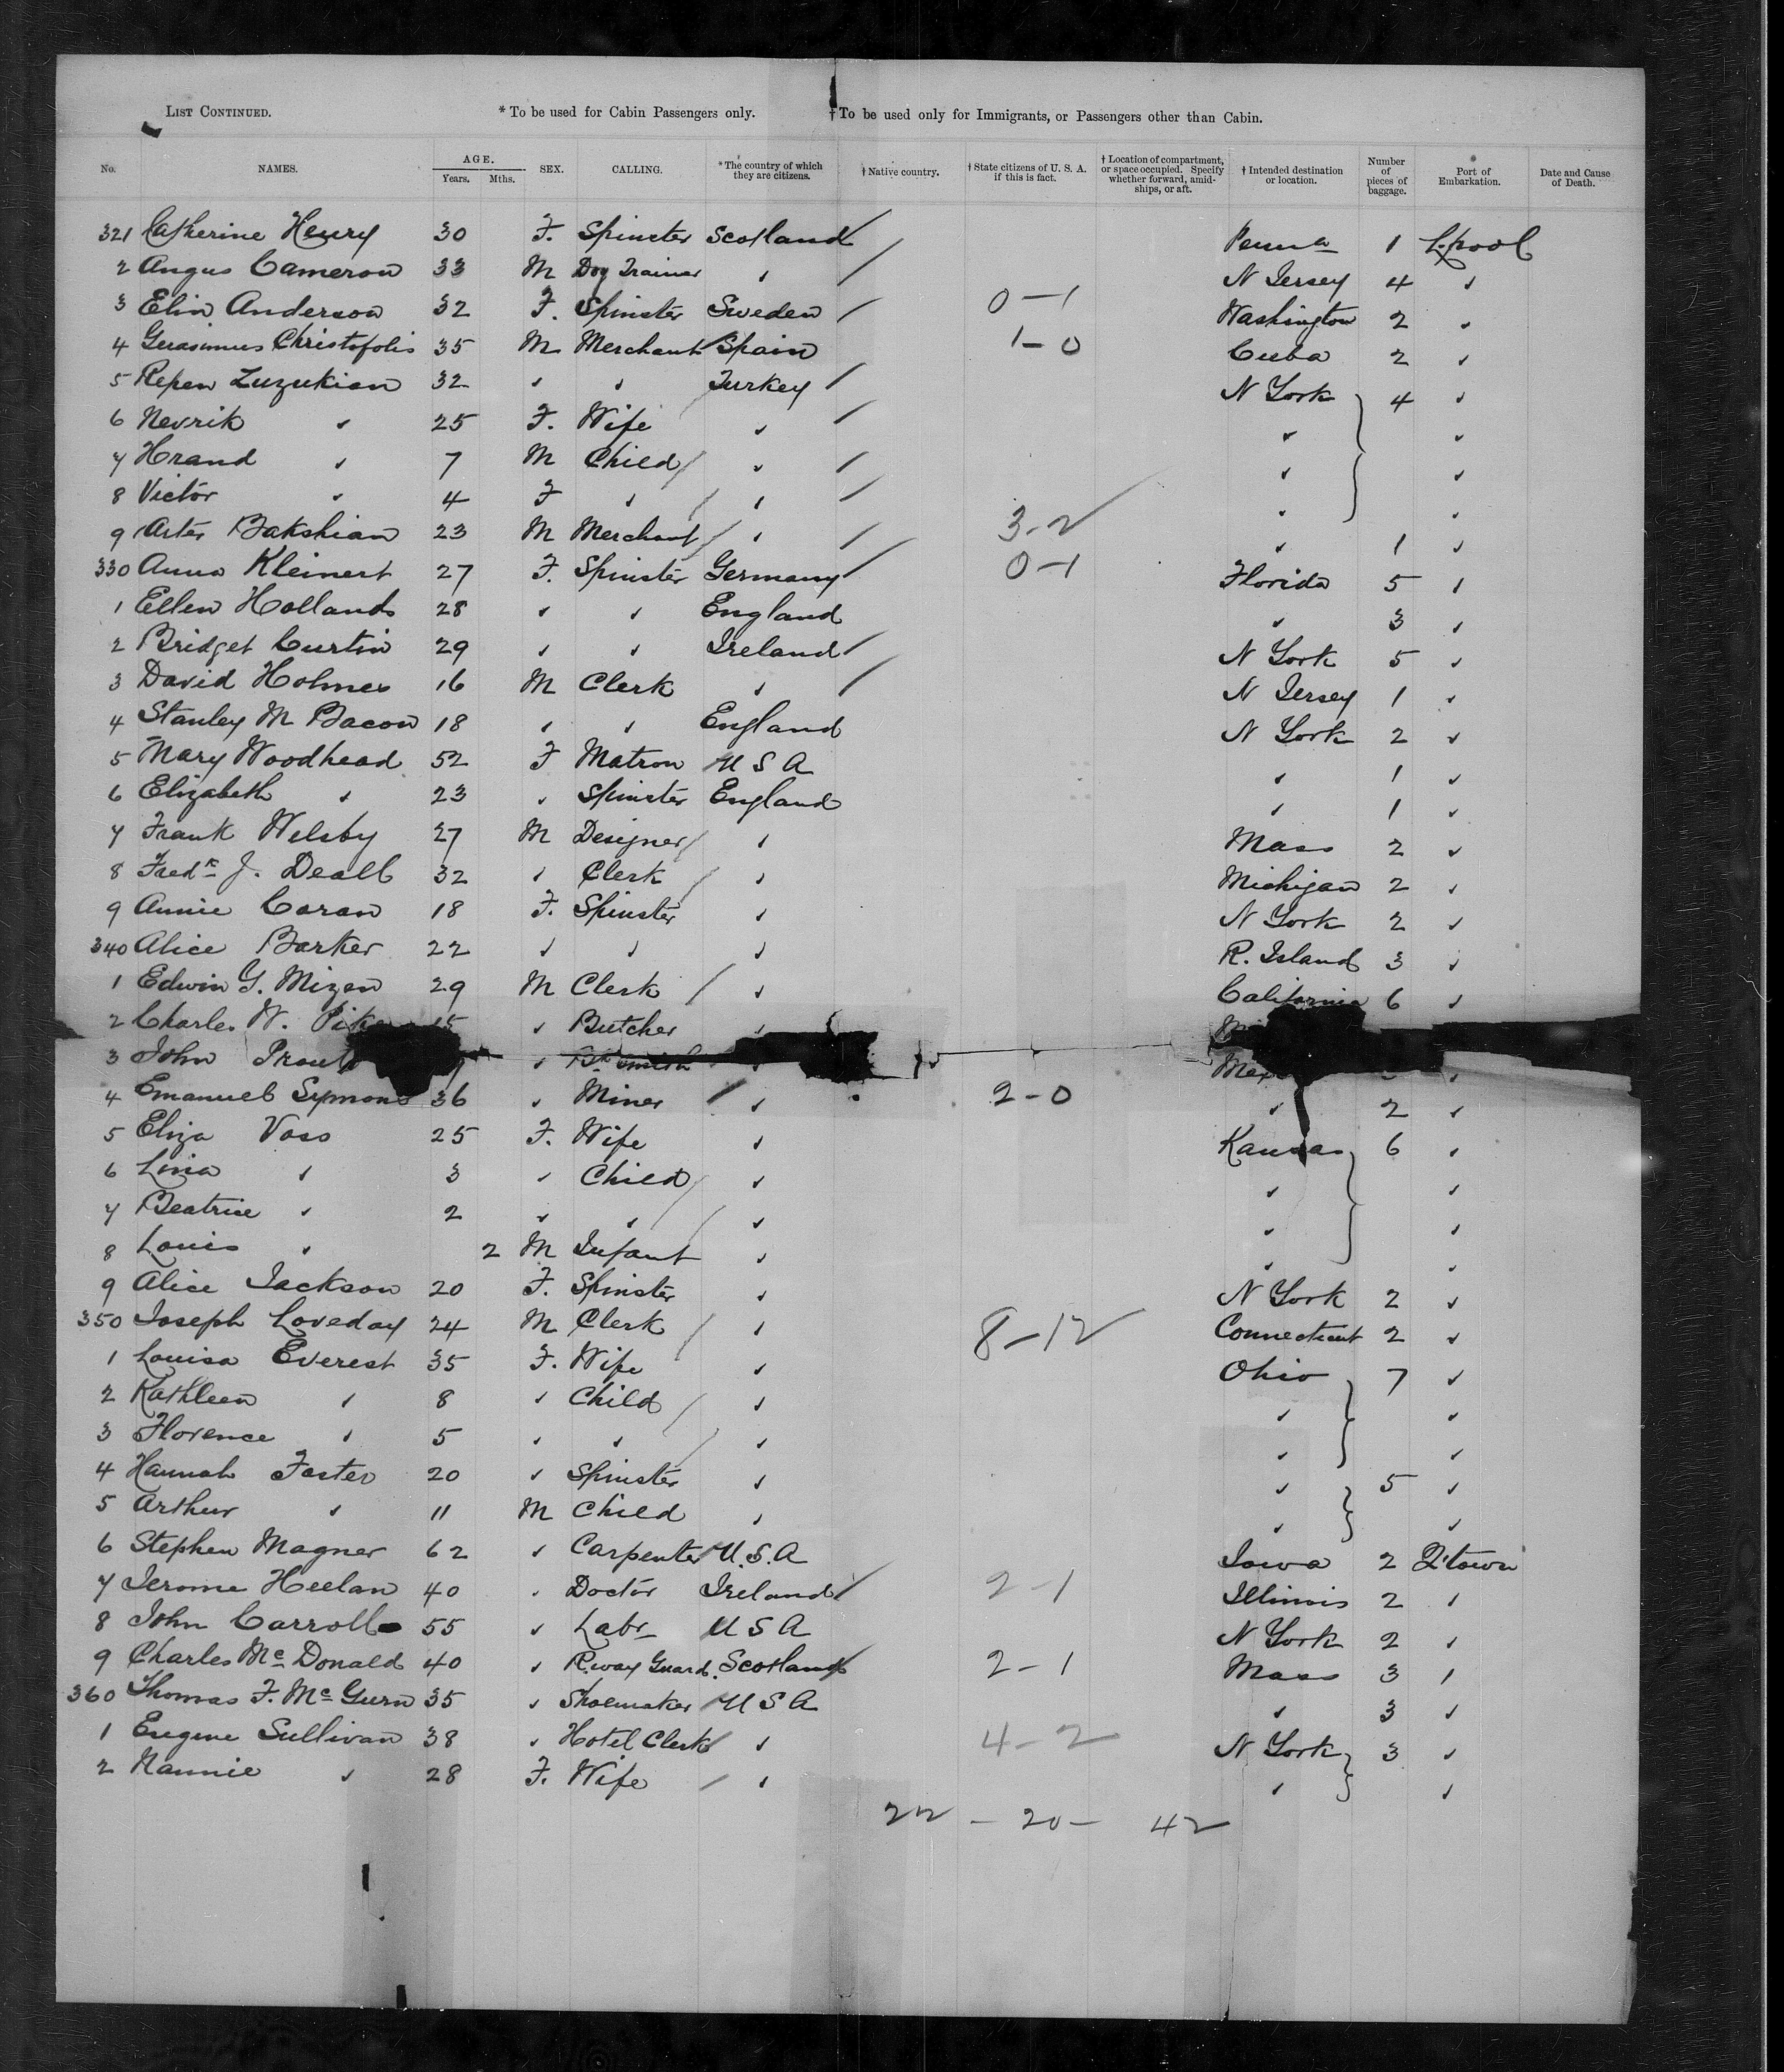 LIST CONTINUED. * To be used for Cabin Passengers only. † To be used only for Immigrants, or Passengers other than Cabin.
No. NAMES. AGE. Years. Mths. SEX. CALLING. * The country of which they are citizens. † Native country. † State citizens of U. S. A. if this is fact. † Location of compartment, or space occupied. Specify whether forward, amidships, or aft. † Intended destination or location. Number of pieces of baggage. Port of Embarkation. Date and Cause of Death.
321 Catherine Henry 30 F. Spinster Scotland Penna 1 L.pool
2 Angus Cameron 33 M Dog Trainer " N Jersey 4 "
3 Elin Anderson 32 F. Spinster Sweden 0-1 Washington 2 "
4 Gerasimus Christofolis 35 M Merchant Spain 1-0 Cuba 2 "
5 Repen Zuzukian 32 " " Turkey N York 4 "
6 Nevrik " 25 F. Wife " " "
7 Hrand " 7 M Child " " "
8 Victor " 4 F " " " "
9 Arter Bakshian 23 M Merchant " 3-2 " 1 "
330 Anna Kleinert 27 F. Spinster Germany 0-1 Florida 5 "
1 Ellen Hollands 28 " " England " 3 "
2 Bridget Curtin 29 " " Ireland N York 5 "
3 David Holmes 16 M Clerk " N Jersey 1 "
4 Stanley M Bacon 18 " " England N York 2 "
5 Mary Woodhead 52 F Matron U S A " 1 "
6 Elizabeth " 23 " Spinster England " 1 "
7 Frank Welsby 27 M Designer " Mass 2 "
8 Fredk J. Deall 32 " Clerk " Michigan 2 "
9 Annie Coran 18 F. Spinster " N York 2 "
340 Alice Barker 22 " " " R. Island 3 "
1 Edwin G. Mizen 29 M Clerk " California 6 "
2 Charles W. " Butcher "
3 John " "
4 Emanuel Symons 36 " Miner " 2-0 " 2 "
5 Eliza Voss 25 F. Wife " Kansas 6 "
6 Lina " 3 " Child " " "
7 Beatrice " 2 " " " " "
8 Louis " 2 M Infant " " "
9 Alice Jackson 20 F. Spinster " N York 2 "
350 Joseph Loveday 24 M Clerk " 8-12 Connecticut 2 "
1 Louisa Everest 35 F. Wife " Ohio 7 "
2 Kathleen " 8 " Child " " "
3 Florence " 5 " " " " "
4 Hannah Foster 20 " Spinster " " 5 "
5 Arthur " 11 M Child " " "
6 Stephen Magner 62 " Carpenter U.S.A Iowa 2 Q'town
7 Jerome Heelan 40 " Doctor Ireland 2-1 Illinois 2 "
8 John Carroll 55 " Labr U S A N York 2 "
9 Charles Mc Donald 40 " R.way Guard. Scotland 2-1 Mass 3 "
360 Thomas F. Mc Gurn 35 " Shoemaker U S A " 3 "
1 Eugene Sullivan 38 " Hotel Clerk " 4-2 N York 3 "
2 Nannie " 28 F. Wife " " "
22 - 20 - 42